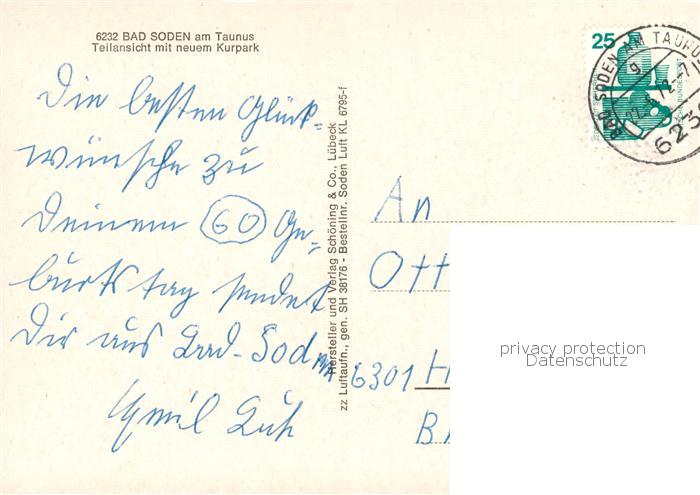 6232 BAD SODEN am Taunus
Teilansicht mit neuem Kurpark
Die besten Glück-
wünsche zu
Deinem 60 Ge-
burtstag sendet
Dir aus Bad-Soden
Emil
Hersteller und Verlag Schöning & Co., Lübeck
zz Luftaufn., gen. SH 38176 - Bestellnr. Soden Luft KL 6795-f
25
BAD SODEN AM TAUNUS
623
An
Ott
6301 H
privacy protection
Datenschutz